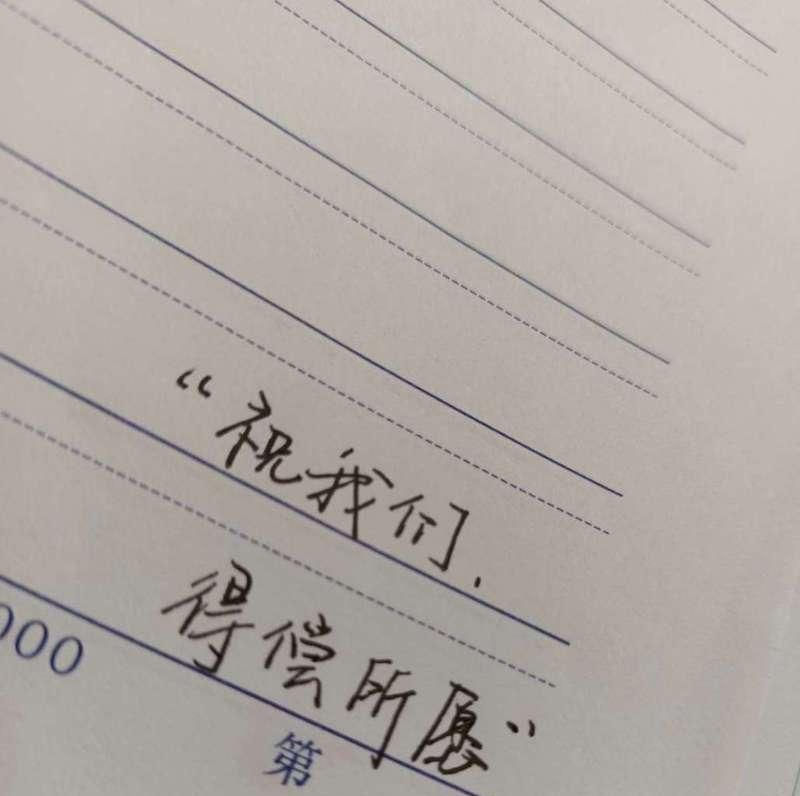 “祝我们.
得偿所愿”
000
第